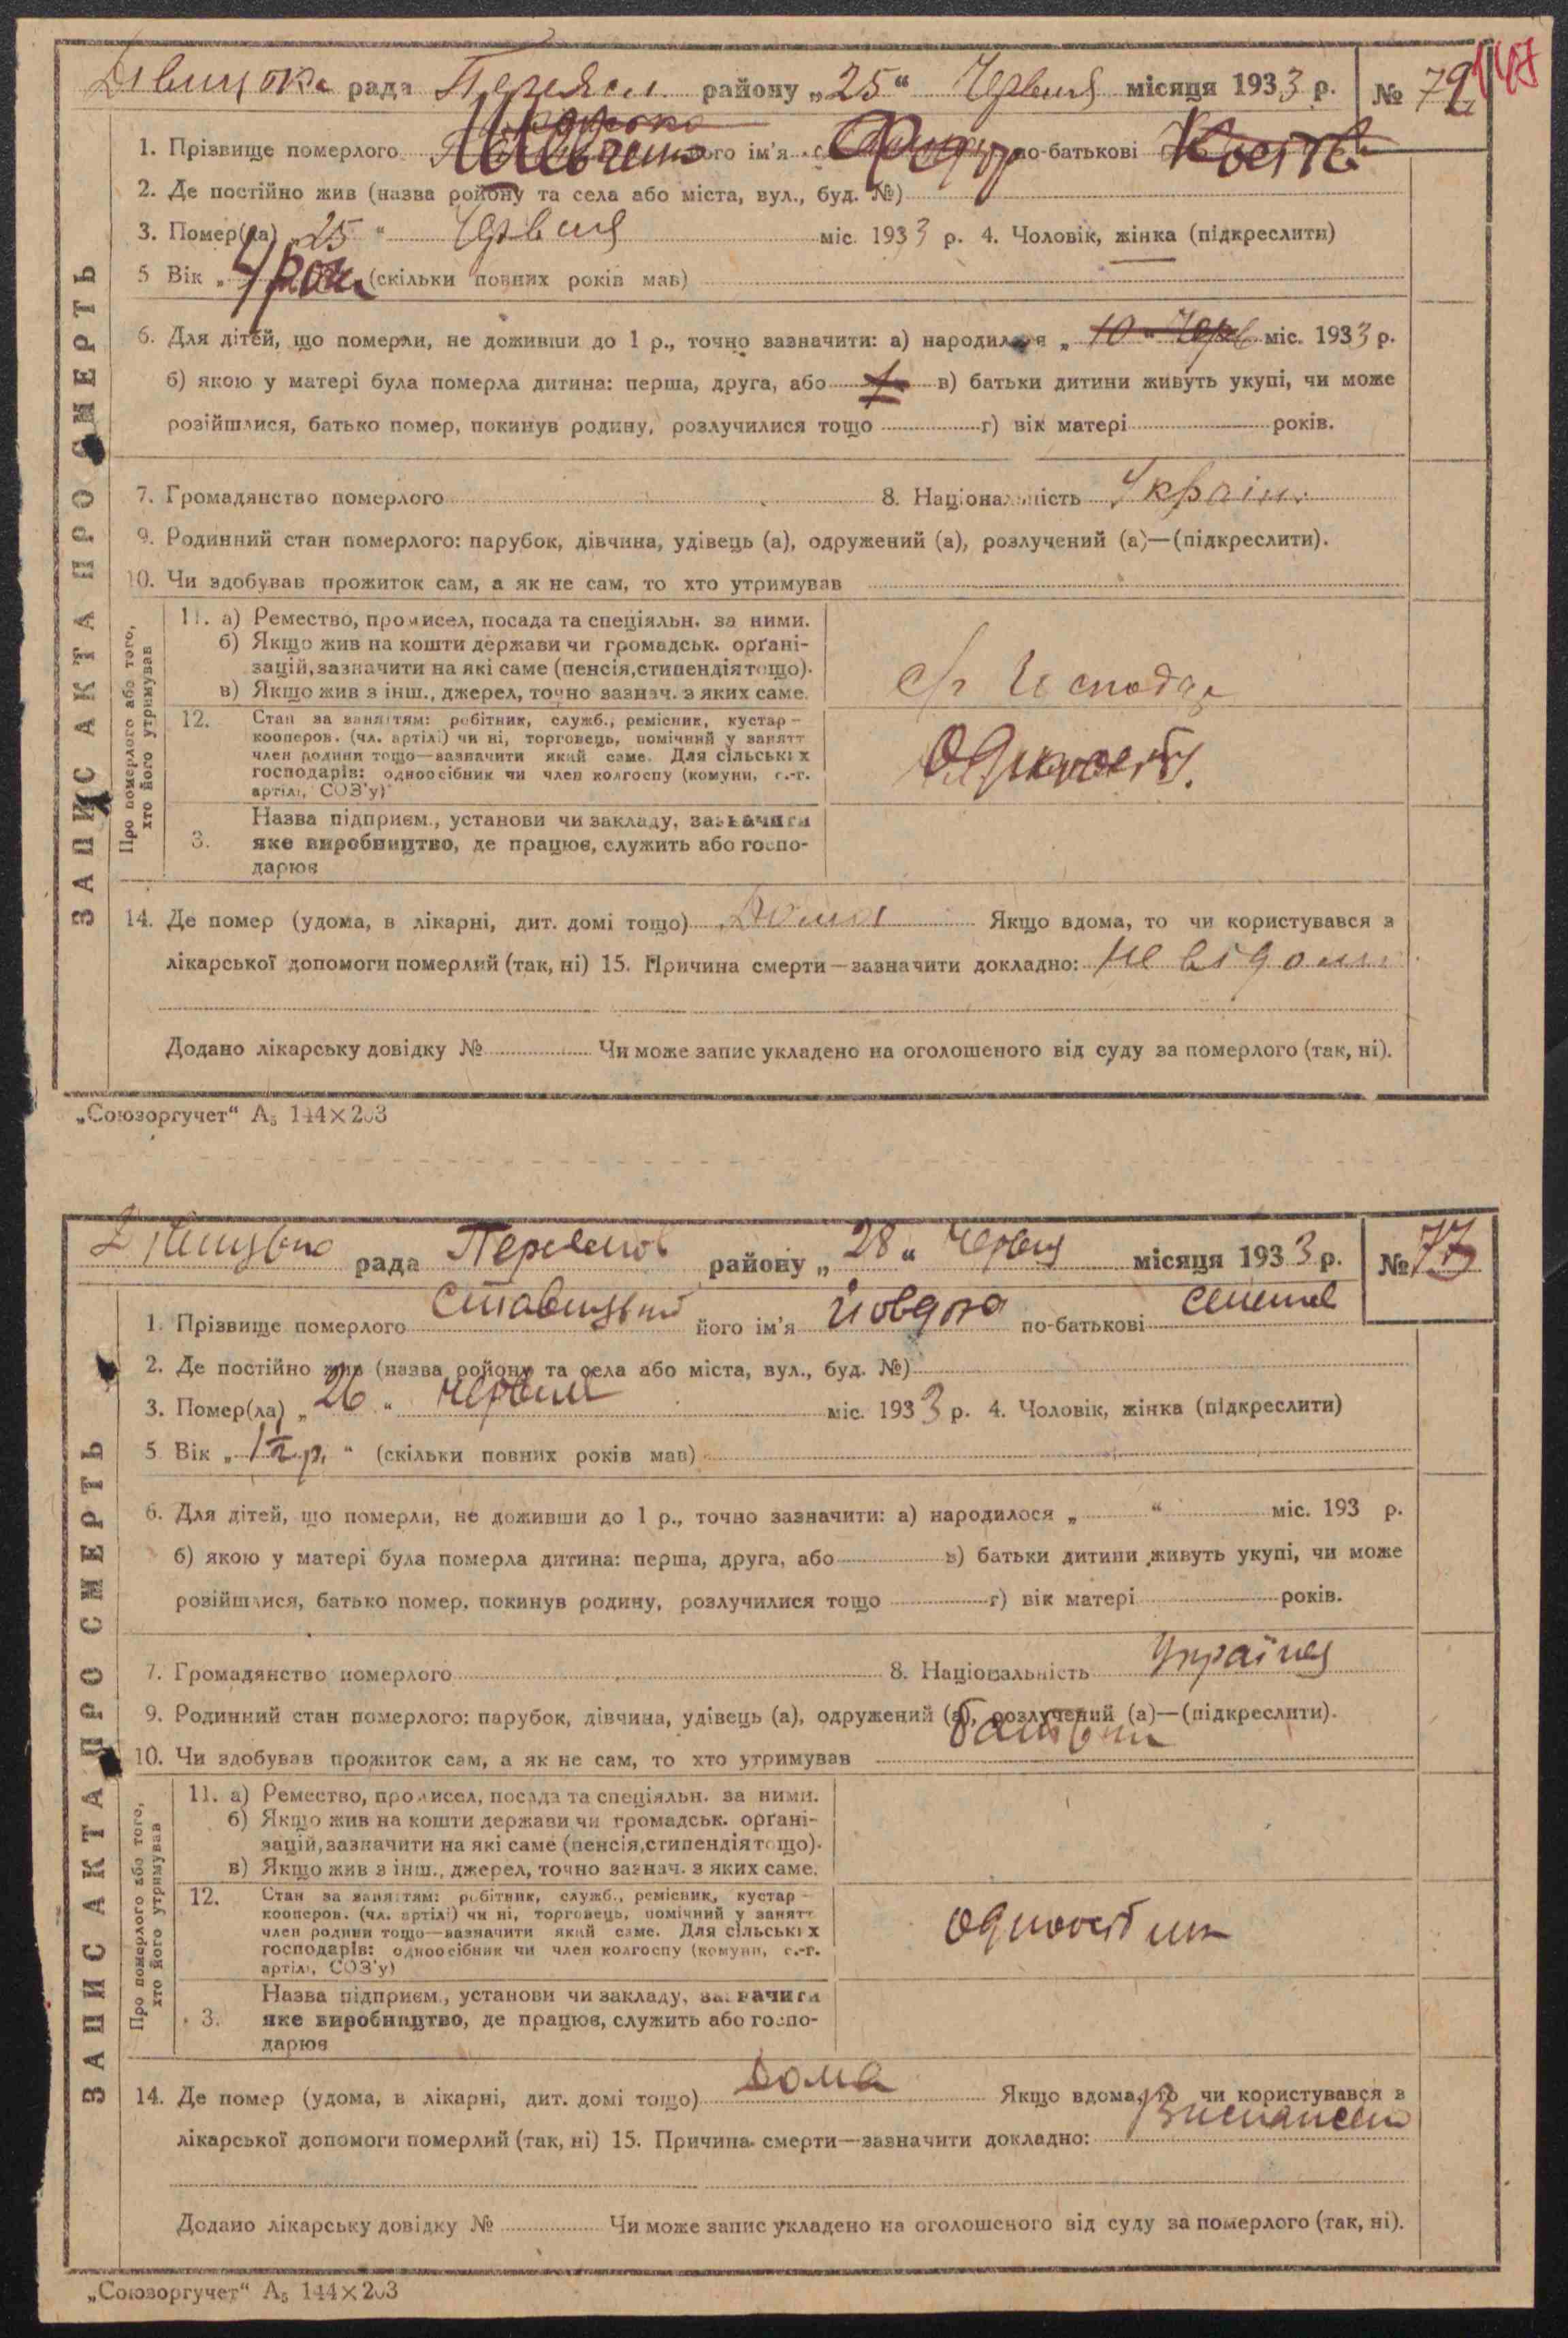 147
Дівицька рада Переясл. району „25“ Червня місяця 1933 р. № 72
1. Прізвище померлого його ім'я Федір по-батькові Кость
2. Де постійно жив (назва ройону та села або міста, вул., буд. №)
3. Помер(ла) „25“ Червня міс. 1933 р. 4. Чоловік, жінка (підкреслити)
5 Вік „4 роки (скільки повних років мав)
6. Для дітей, що померли, не доживши до 1 р., точно зазначити: а) народилося „10“ Черв міс. 1933 р.
б) якою у матері була померла дитина: перша, друга, або в) батьки дитини живуть укупі, чи може
розійшлися, батько помер, покинув родину, розлучилися тощо г) вік матері років.
7. Громадянство померлого 8. Національність Україн.
9. Родинний стан померлого: парубок, дівчина, удівець (а), одружений (а), розлучений (а)—(підкреслити).
10. Чи здобував прожиток сам, а як не сам, то хто утримував
ЗАПИС АКТА ПРО СМЕРТЬ
Про померлого або того,
хто його утримував
11. а) Ремество, промисел, посада та спеціяльн. за ними.
б) Якщо жив на кошти держави чи громадськ. орґані-
зацій, зазначити на які саме (пенсія, стипендія тощо).
в) Якщо жив з інш., джерел, точно зазнач. з яких саме.
12. Стан за заняттям: робітник, служб., ремісник, кустар—
кооперов. (чл. артілі) чи ні, торговець, помічний у занятт
член родини тощо—зазначити який саме. Для сільських
господарів: одноосібник чи член колгоспу (комуни, с.-г.
артілі, СОЗ'у)
3. Назва підприєм., установи чи закладу, зазначити
яке виробництво, де працює, служить або госпо-
дарює
14. Де помер (удома, в лікарні, дит. домі тощо) Дома Якщо вдома, то чи користувався з
лікарської допомоги померлий (так, ні) 15. Причина смерти—зазначити докладно: не відом.
Додано лікарську довідку № Чи може запис укладено на оголошеного від суду за померлого (так, ні).
„Союзоргучет“ А₅ 144×203
Дівицька рада Переяслов району „28“ Червня місяця 1933 р. № 73
1. Прізвище померлого Ставицький його ім'я Йовдоха по-батькові Семенов
2. Де постійно жив (назва ройону та села або міста, вул., буд. №)
3. Помер(ла) „26“ червня міс. 1933 р. 4. Чоловік, жінка (підкреслити)
5 Вік „1½ р.“ (скільки повних років мав)
6. Для дітей, що померли, не доживши до 1 р., точно зазначити: а) народилося „ “ міс. 193 р.
б) якою у матері була померла дитина: перша, друга, або в) батьки дитини живуть укупі, чи може
розійшлися, батько помер, покинув родину, розлучилися тощо г) вік матері років.
7. Громадянство померлого 8. Національність Україней
9. Родинний стан померлого: парубок, дівчина, удівець (а), одружений (а), розлучений (а)—(підкреслити).
10. Чи здобував прожиток сам, а як не сам, то хто утримував батьки
ЗАПИС АКТА ПРО СМЕРТЬ
Про померлого або того,
хто його утримував
11. а) Ремество, промисел, посада та спеціяльн. за ними.
б) Якщо жив на кошти держави чи громадськ. орґані-
зацій, зазначити на які саме (пенсія, стипендія тощо).
в) Якщо жив з інш., джерел, точно зазнач. з яких саме.
12. Стан за заняттям: робітник, служб., ремісник, кустар—
кооперов. (чл. артілі) чи ні, торговець, помічний у занятт
член родини тощо—зазначити який саме. Для сільських
господарів: одноосібник чи член колгоспу (комуни, с.-г.
артілі, СОЗ'у)
одноосібник
3. Назва підприєм., установи чи закладу, зазначити
яке виробництво, де працює, служить або госпо-
дарює
14. Де помер (удома, в лікарні, дит. домі тощо) Дома Якщо вдома, то чи користувався в
лікарської допомоги померлий (так, ні) 15. Причина смерти—зазначити докладно:
Додано лікарську довідку № Чи може запис укладено на оголошеного від суду за померлого (так, ні).
„Союзоргучет“ А₅ 144×203